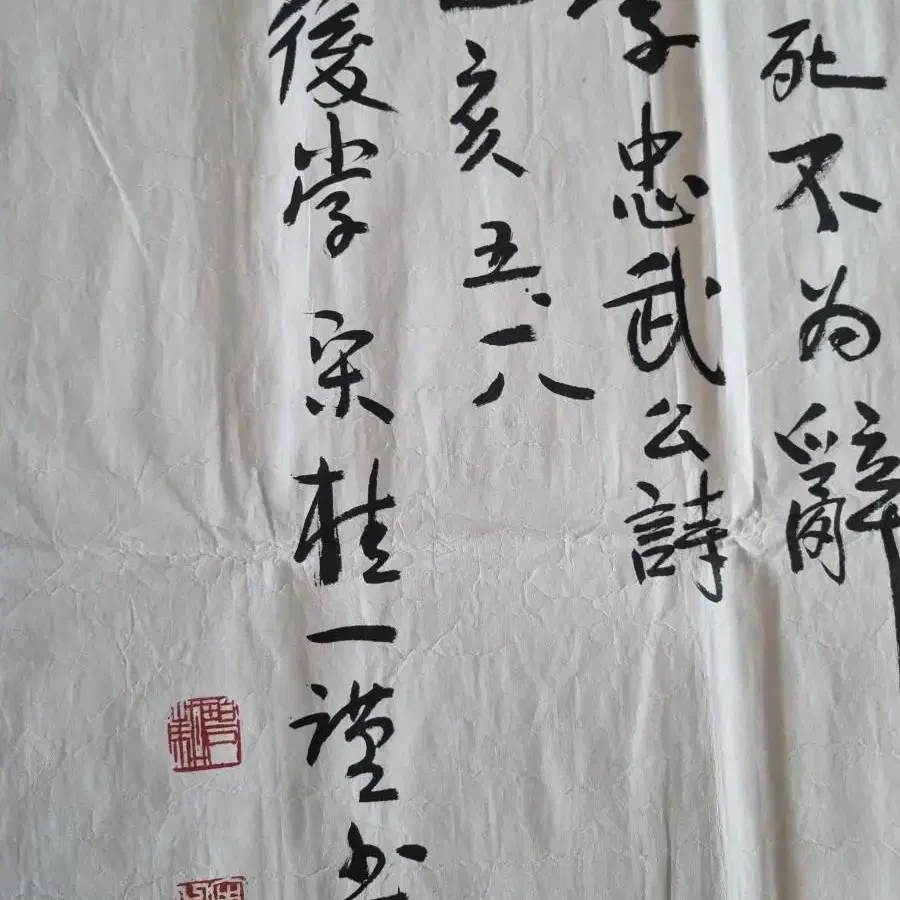 死不為辭
李忠武公詩
亥五、一八
後学宋桂一謹书